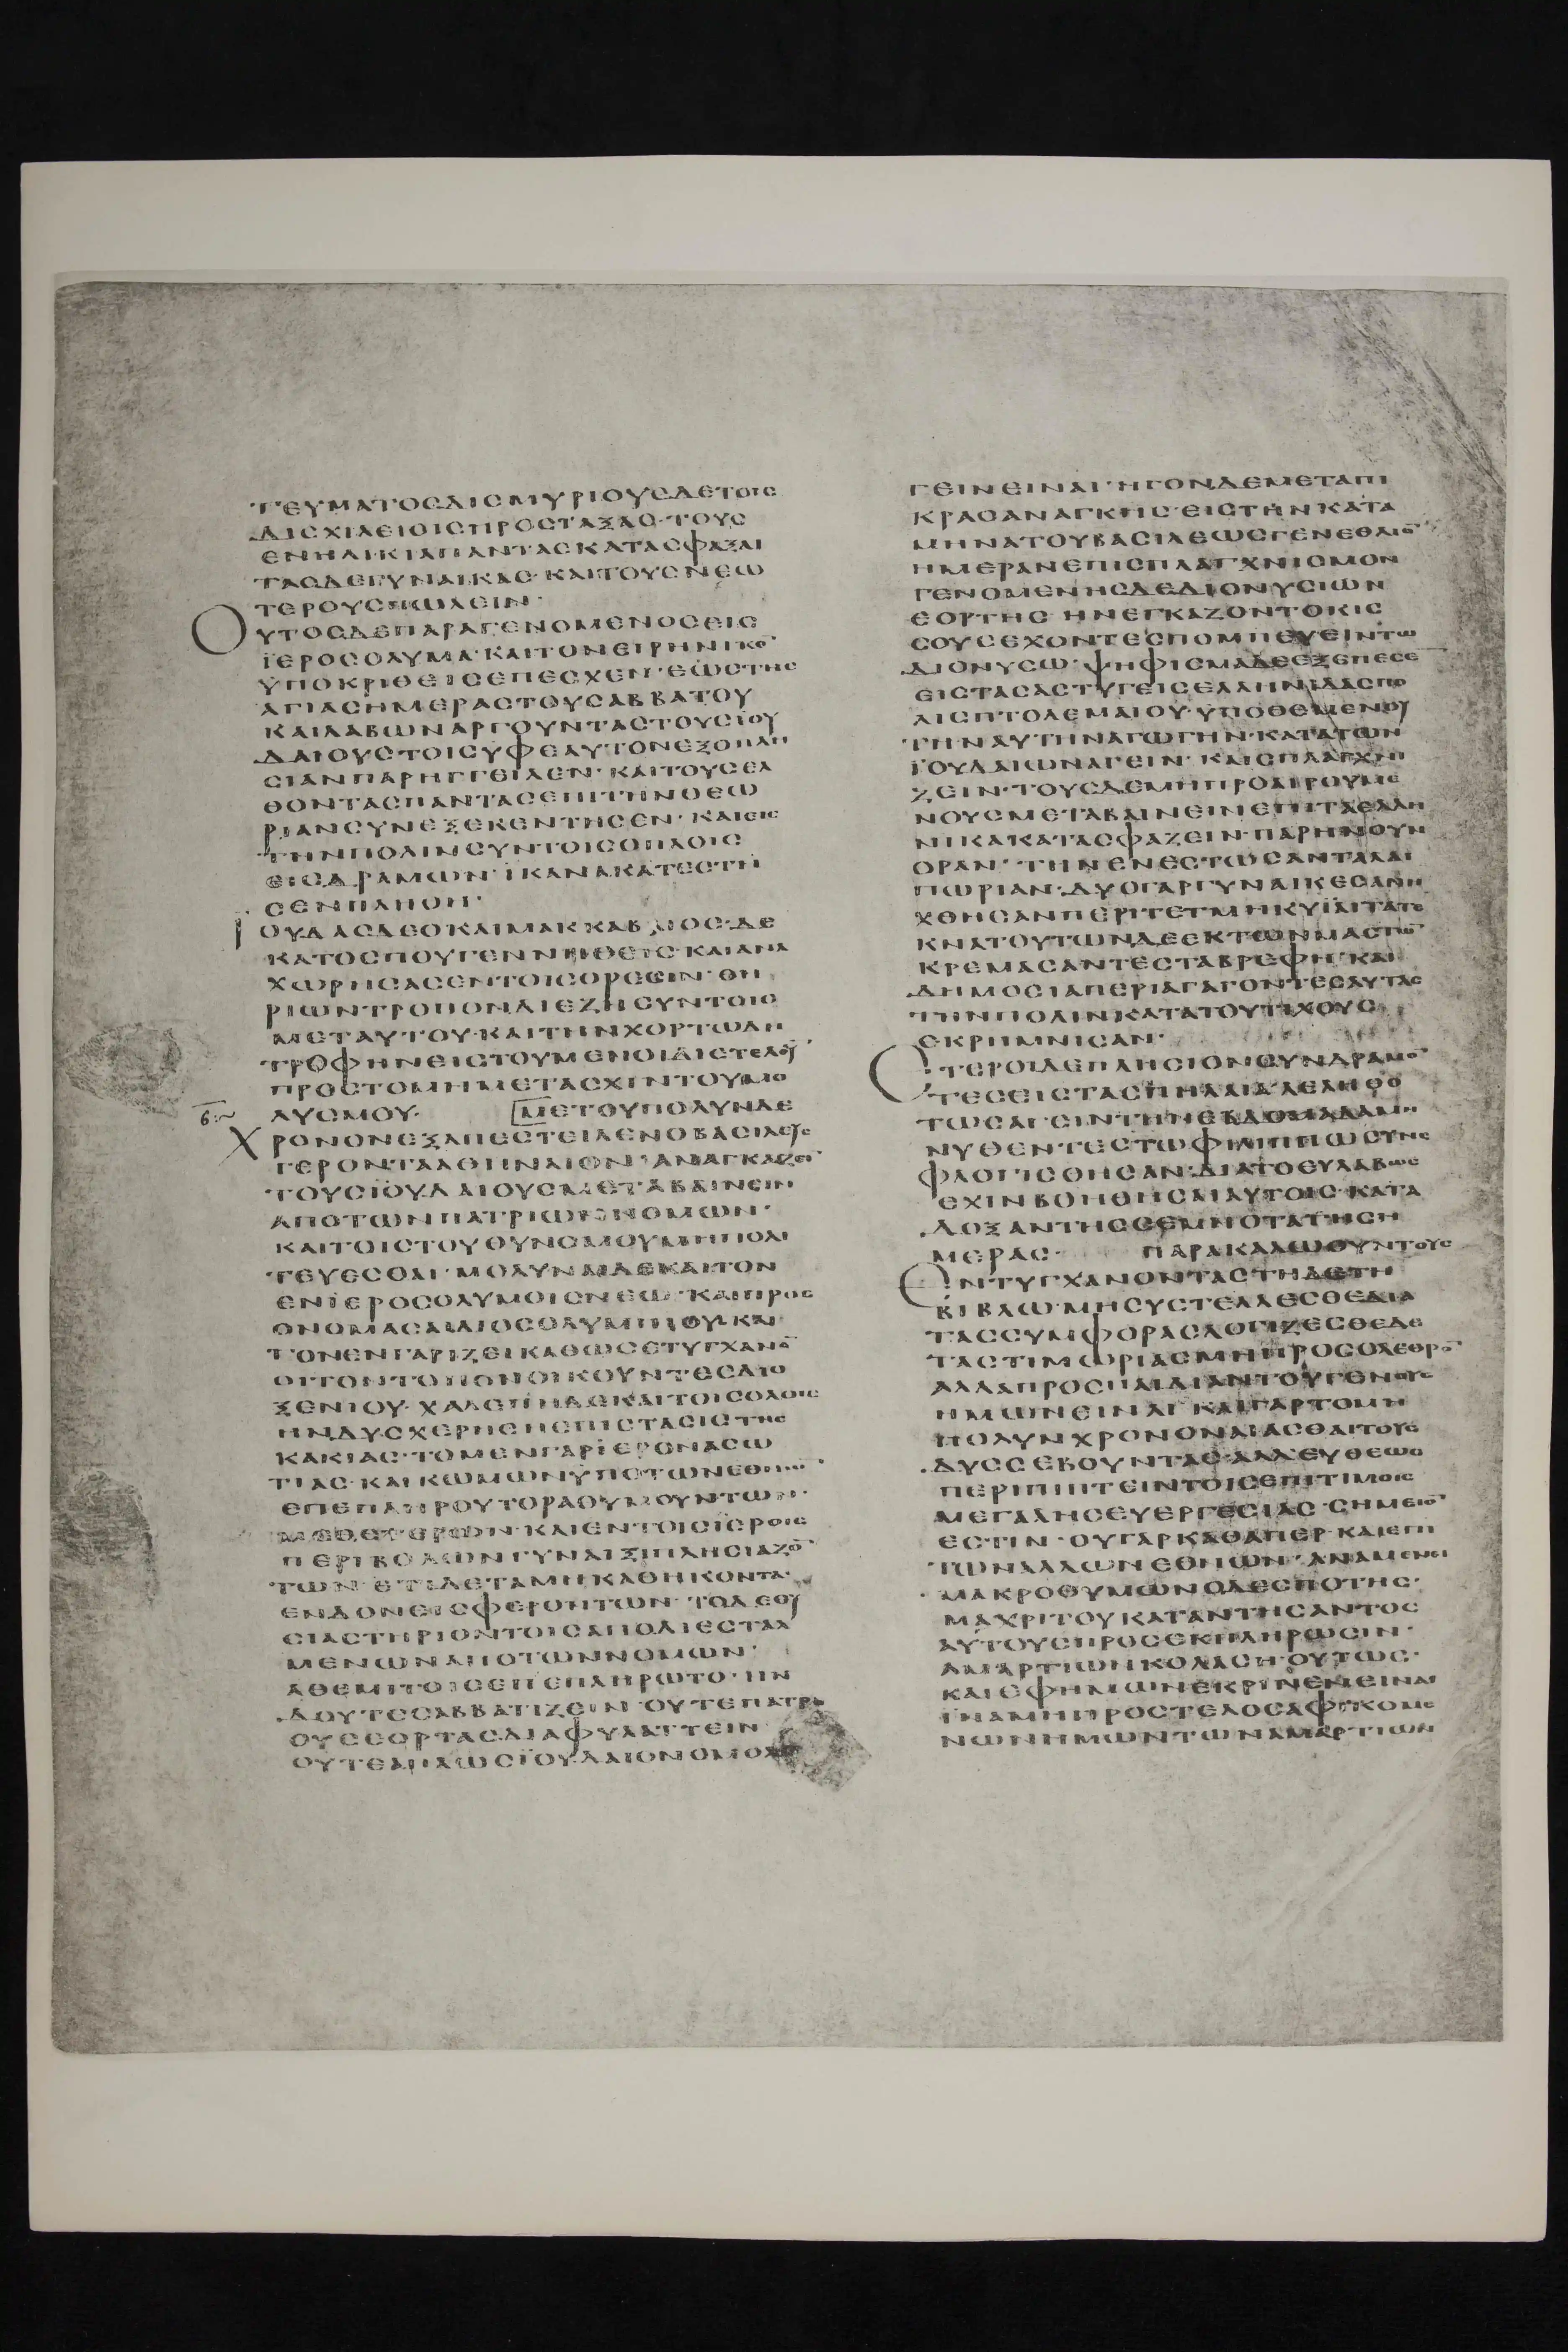 ΤΕΥΜΑΤΟΣΔΙΣΜΥΡΙΟΥΣΔΕΤΟΙΣ
ΔΙΣΧΙΛΕΙΟΙΣΠΡΟΣΤΑΞΑΣ·ΤΟΥΣ
ΕΝΗΛΙΚΙΑΠΑΝΤΑΣΚΑΤΑΣΦΑΞΑΙ
ΤΑΣΔΕΓΥΝΑΙΚΑΣ·ΚΑΙΤΟΥΣΝΕΩ
ΤΕΡΟΥΣΠΩΛΕΙΝ·
ΟΥΤΟΣΔΕΠΑΡΑΓΕΝΟΜΕΝΟΣΕΙΣ
ΪΕΡΟΣΟΛΥΜΑ·ΚΑΙΤΟΝΕΙΡΗΝΙΚΟ̅
ΥΠΟΚΡΙΘΕΙΣΕΠΕΣΧΕΝ·ΕΩΣΤΗΣ
ΑΓΙΑΣΗΜΕΡΑΣΤΟΥΣΑΒΒΑΤΟΥ
ΚΑΙΛΑΒΩΝΑΡΓΟΥΝΤΑΣΤΟΥΣΪΟΥ
ΔΑΙΟΥΣ·ΤΟΙΣΥΦΕΑΥΤΟΝΕΞΟΠΛΗ
ΣΙΑΝΠΑΡΗΓΓΕΙΛΕΝ·ΚΑΙΤΟΥΣΕΛ
ΘΟΝΤΑΣΠΑΝΤΑΣΕΠΙΤΗΝΘΕΩ
ΡΙΑΝΣΥΝΕΞΕΚΕΝΤΗΣΕΝ·ΚΑΙΕΙΣ
ΤΗΝΠΟΛΙΝΣΥΝΤΟΙΣΟΠΛΟΙΣ
ΕΙΣΔΡΑΜΩΝ·ΪΚΑΝΑΚΑΤΕΣΤΗ
ΣΕΝΠΛΗΘΗ·
ΙΟΥΔΑΣΔΕΟΚΑΙΜΑΚΚΑΒΑΙΟΣ·ΔΕ
ΚΑΤΟΣΠΟΥΓΕΝΝΗΘΕΙΣ·ΚΑΙΑΝΑ
ΧΩΡΗΣΑΣΕΝΤΟΙΣΟΡΕΣΙΝ·ΘΗ
ΡΙΩΝΤΡΟΠΟΝΔΙΕΖΗΣΥΝΤΟΙΣ
ΜΕΤΑΥΤΟΥ·ΚΑΙΤΗΝΧΟΡΤΩΔΗ
ΤΡΟΦΗΝΣΙΤΟΥΜΕΝΟΙΔΙΕΤΕΛΟΥ
ΠΡΟΣΤΟΜΗΜΕΤΑΣΧΙΝΤΟΥΜΟ
ΛΥΣΜΟΥ· ΜΕΤΟΥΠΟΛΥΝΔΕ
ΧΡΟΝΟΝΕΞΑΠΕΣΤΕΙΛΕΝΟΒΑΣΙΛΕΥΣ
ΓΕΡΟΝΤΑΑΘΗΝΑΙΟΝ·ΑΝΑΓΚΑΖΕΙ̅
ΤΟΥΣΪΟΥΔΑΙΟΥΣΜΕΤΑΒΑΙΝΕΙΝ
ΑΠΟΤΩΝΠΑΤΡΙΩΝΝΟΜΩΝ·
ΚΑΙΤΟΙΣΤΟΥΘΥΝΟΜΟΥΜΗΠΟΛΙ
ΤΕΥΕΣΘΑΙ·ΜΟΛΥΝΑΙΔΕΚΑΙΤΟΝ
ΕΝΪΕΡΟΣΟΛΥΜΟΙΣΝΕΩ·ΚΑΙΠΡΟΣ
ΟΝΟΜΑΣΑΙΔΙΟΣΟΛΥΜΠΙΟΥ·ΚΑΙ
ΤΟΝΕΝΓΑΡΙΖΕΙΚΑΘΩΣΕΤΥΓΧΑΝΟ̅
ΟΙΤΟΝΤΟΠΟΝΟΙΚΟΥΝΤΕΣΔΙΟ
ΞΕΝΙΟΥ·ΧΑΛΕΠΗΔΕΚΑΙΤΟΙΣΟΛΟΙΣ
ΗΝΔΥΣΧΕΡΗΣΗΕΠΙΣΤΑΣΙΣΤΗΣ
ΚΑΚΙΑΣ·ΤΟΜΕΝΓΑΡΪΕΡΟΝΑΣΩ
ΤΙΑΣ·ΚΑΙΚΩΜΩΝΥΠΟΤΩΝΕΘΝΩΝ
ΕΠΕΠΛΗΡΟΥΤΟΡΑΘΥΜΟΥΝΤΩΝ·
ΜΕΘΕΤΕΡΩΝ·ΚΑΙΕΝΤΟΙΣΪΕΡΟΙΣ
ΠΕΡΙΒΟΛΩΝΓΥΝΑΙΞΙΠΛΗΣΙΑΖΟ̅
ΤΩΝ·ΕΤΙΔΕΤΑΜΗΚΑΘΗΚΟΝΤΑ·
ΕΝΔΟΝΕΙΣΦΕΡΟΝΤΩΝ·ΤΟΔΕΘΥ
ΣΙΑΣΤΗΡΙΟΝΤΟΙΣΑΠΟΔΙΕΣΤΑΛ
ΜΕΝΩΝΑΠΟΤΩΝΝΟΜΩΝ·
ΑΘΕΜΙΤΟΙΣΕΠΕΠΛΗΡΩΤΟ·ΗΝ
ΔΟΥΤΕΣΑΒΒΑΤΙΖΕΙΝ·ΟΥΤΕΠΑΤΡΩ
ΟΥΣΕΟΡΤΑΣΔΙΑΦΥΛΑΤΤΕΙΝ
ΟΥΤΕΑΠΛΩΣΪΟΥΔΑΙΟΝΟΜΟΛΟ
ΓΕΙΝΕΙΝΑΙ·ΗΓΟΝΔΕΜΕΤΑΠΙ
ΚΡΑΣΑΝΑΓΚΗΣ·ΕΙΣΤΗΝΚΑΤΑ
ΜΗΝΑΤΟΥΒΑΣΙΛΕΩΣΓΕΝΕΘΛΙΟ̅
ΗΜΕΡΑΝΕΠΙΣΠΛΑΓΧΝΙΣΜΟΝ
ΓΕΝΟΜΕΝΗΣΔΕΔΙΟΝΥΣΙΩΝ
ΕΟΡΤΗΣ·ΗΝΕΓΚΑΖΟΝΤΟΚΙΣ
ΣΟΥΣΕΧΟΝΤΕΣΠΟΜΠΕΥΕΙΝΤΩ
ΔΙΟΝΥΣΩ·ΨΗΦΙΣΜΑΔΕΕΞΕΠΕΣΕ
ΕΙΣΤΑΣΑΣΤΥΓΕΙΣΕΛΛΗΝΙΔΑΣΠΟ
ΛΙΣΠΤΟΛΕΜΑΙΟΥ·ΥΠΟΘΕΜΕΝΟΥ
ΤΗΝΑΥΤΗΝΑΓΩΓΗΝ·ΚΑΤΑΤΩΝ
ΪΟΥΔΑΙΩΝΑΓΕΙΝ·ΚΑΙΣΠΛΑΓΧΝΙ
ΖΕΙΝ·ΤΟΥΣΔΕΜΗΠΡΟΑΙΡΟΥΜΕ
ΝΟΥΣΜΕΤΑΒΑΙΝΕΙΝΕΠΙΤΑΕΛΛΗ
ΝΙΚΑΚΑΤΑΣΦΑΖΕΙΝ·ΠΑΡΗΝΟΥΝ
ΟΡΑΝ·ΤΗΝΕΝΕΣΤΩΣΑΝΤΑΛΑΙ
ΠΩΡΙΑΝ·ΔΥΟΓΑΡΓΥΝΑΙΚΕΣΑΝΗ
ΧΘΗΣΑΝΠΕΡΙΤΕΤΜΗΚΥΪΑΙΤΑΤΕ
ΚΝΑΤΟΥΤΩΝΔΕΕΚΤΩΝΜΑΣΤΩ̅
ΚΡΕΜΑΣΑΝΤΕΣΤΑΒΡΕΦΗ·ΚΑΙ
ΔΗΜΟΣΙΑΠΕΡΙΑΓΑΓΟΝΤΕΣΑΥΤΑΣ
ΤΗΝΠΟΛΙΝΚΑΤΑΤΟΥΤΙΧΟΥΣ
ΕΚΡΗΜΝΙΣΑΝ·
ΕΤΕΡΟΙΔΕΠΛΗΣΙΟΝΣΥΝΔΡΑΜΟ̅
ΤΕΣΕΙΣΤΑΣΠΗΛΑΙΑ·ΛΕΛΗΘΟ
ΤΩΣΑΓΕΙΝΤΗΝΕΒΔΟΜΑΔΑΜΗ
ΝΥΘΕΝΤΕΣΤΩΦΙΛΙΠΠΩΣΥΝΕ
ΦΛΟΓΙΣΘΗΣΑΝ·ΔΙΑΤΟΕΥΛΑΒΩΣ
ΕΧΙΝΒΟΗΘΗΣΑΙΑΥΤΟΙΣ·ΚΑΤΑ
ΔΟΞΑΝΤΗΣΣΕΜΝΟΤΑΤΗΣΗ
ΜΕΡΑΣ· ΠΑΡΑΚΑΛΩΟΥΝΤΟΥΣ
ΕΝΤΥΓΧΑΝΟΝΤΑΣΤΗΔΕΤΗ
ΒΙΒΛΩ·ΜΗΣΥΣΤΕΛΛΕΣΘΕΔΙΑ
ΤΑΣΣΥΜΦΟΡΑΣΛΟΓΙΖΕΣΘΕΔΕ
ΤΑΣΤΙΜΩΡΙΑΣΜΗΠΡΟΣΟΛΕΘΡΟ̅
ΑΛΛΑΠΡΟΣΠΑΙΔΙΑΝΤΟΥΓΕΝΟΥΣ
ΗΜΩΝΕΙΝΑΙ·ΚΑΙΓΑΡΤΟΜΗ
ΠΟΛΥΝΧΡΟΝΟΝΑΙΑΣΘΑΙΤΟΥΣ
ΔΥΣΣΕΒΟΥΝΤΑΣ·ΑΛΛΕΥΘΕΩΣ
ΠΕΡΙΠΙΠΤΕΙΝΤΟΙΣΕΠΙΤΙΜΟΙΣ
ΜΕΓΑΛΗΣΕΥΕΡΓΕΣΙΑΣ·ΣΗΜΕΙΟ̅
ΕΣΤΙΝ·ΟΥΓΑΡΚΑΘΑΠΕΡ·ΚΑΙΕΠΙ
ΤΩΝΑΛΛΩΝΕΘΝΩΝ·ΑΝΑΜΕΝΕΙ
ΜΑΚΡΟΘΥΜΩΝΟΔΕΣΠΟΤΗΣ·
ΜΑΧΡΙΤΟΥΚΑΤΑΝΤΗΣΑΝΤΟΣ
ΑΥΤΟΥΣΠΡΟΣΕΚΠΛΗΡΩΣΙΝ·
ΑΜΑΡΤΙΩΝΚΟΛΑΣΗ·ΟΥΤΩΣ·
ΚΑΙΕΦΗΜΩΝΕΚΡΙΝΕΝΕΙΝΑΙ
ΪΝΑΜΗΠΡΟΣΤΕΛΟΣΑΦΙΚΟΜΕ
ΝΩΝΗΜΩΝΤΩΝΑΜΑΡΤΙΩΝ